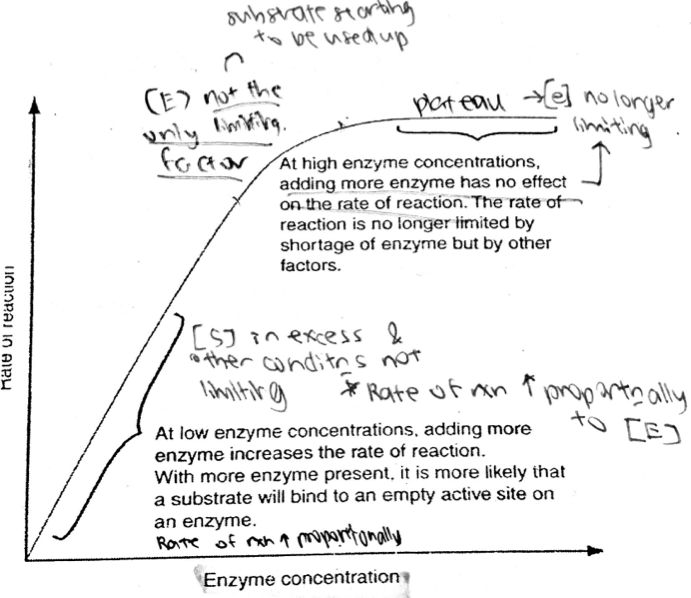 substrate starting
to be used up
[E] not the
only limiting
factor
plateau → [e] no longer
limiting
At high enzyme concentrations,
adding more enzyme has no effect
on the rate of reaction. The rate of
reaction is no longer limited by
shortage of enzyme but by other
factors.
Rate of reaction
[S] in excess &
other conditns not
limiting
* Rate of rxn ↑ proportnally
to [E]
At low enzyme concentrations, adding more
enzyme increases the rate of reaction.
With more enzyme present, it is more likely that
a substrate will bind to an empty active site on
an enzyme.
Rate of rxn ↑ proportionally
Enzyme concentration